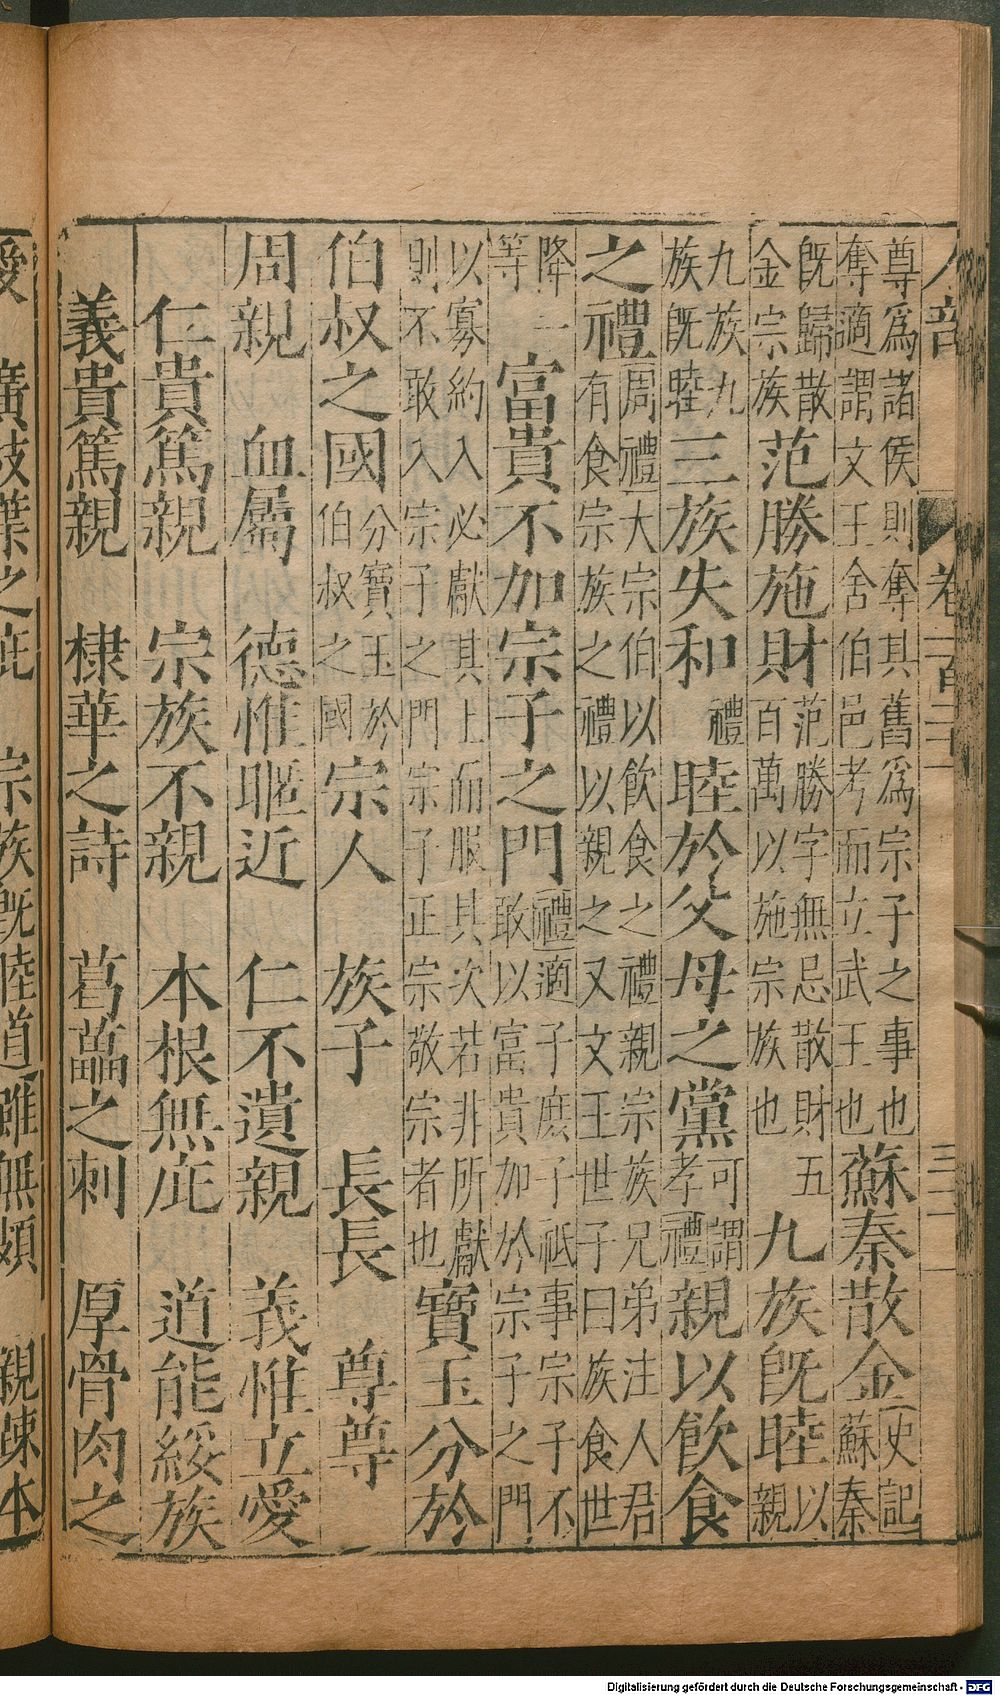 人部
尊爲諸侯則奪其舊爲宗子之事也
奪適謂文王舍伯邑考而立武王也
蘇秦散金
史記
蘇秦
既歸散
金宗族
范勝施財
范勝字無忌散財五
百萬以施宗族也
九族既睦
以
親
九族九
族既睦
三族失和
禮
睦於父母之黨
可謂
孝禮
親以飲食
之禮
周禮大宗伯以飲食之禮親宗族兄弟注人君
有食宗族之禮以親之又文王世子曰族食世
降一
等
富貴不加宗子之門
禮適子庶子祗事宗子不
敢以富貴加於宗子之門
以寡約入必獻其上而服其次若非所獻
則不敢入宗子之門宗子正宗敬宗者也
寶玉分於
伯叔之國
分寶玉於
伯叔之國
宗人 族子 長長 尊尊
周親 血屬 德惟昵近 仁不遺親 義惟立愛
仁貴篤親 宗族不親 本根無庇 道能綏族
義貴篤親 棣華之詩 葛藟之刺 厚骨肉之
愛 廣枝葉之庇 宗族既睦道 雖無頗 親疎本
Digitalisierung gefördert durch die Deutsche Forschungsgemeinschaft - DFG